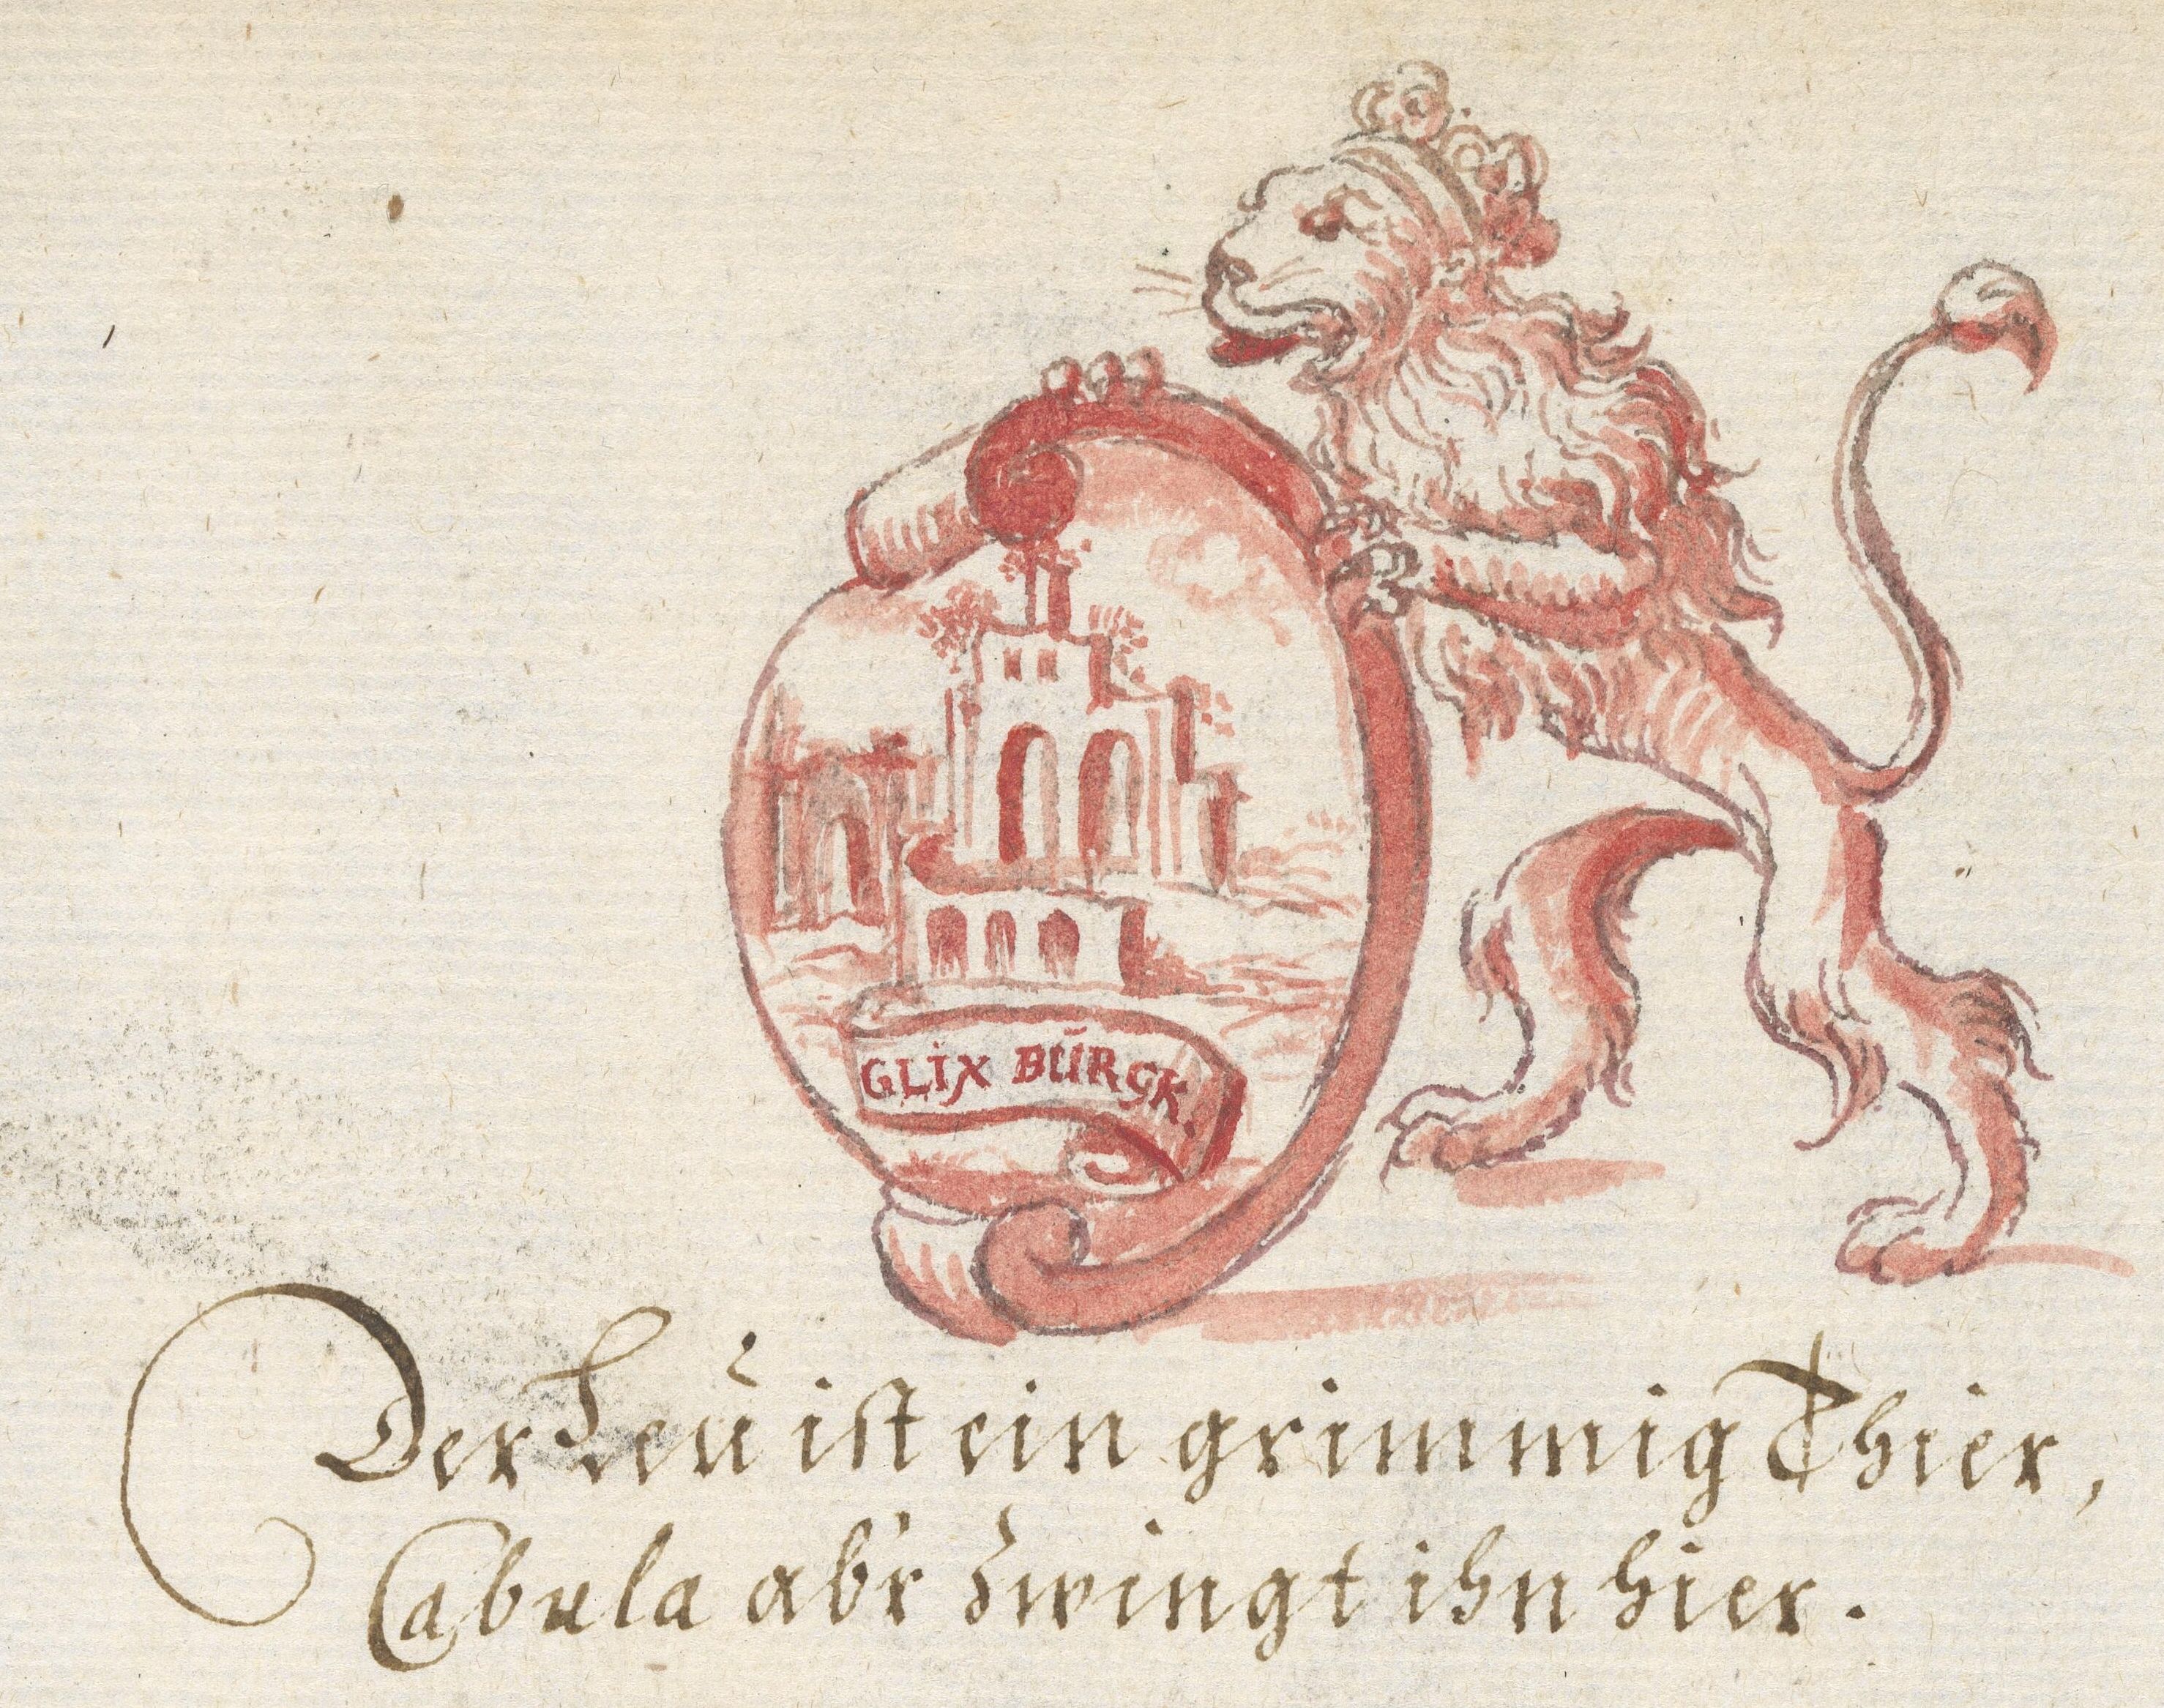 GLIX BŪRGK.
Der Leŭ ist ein grimmig Thier,
Cabula ab'r zwingt ihn hier.